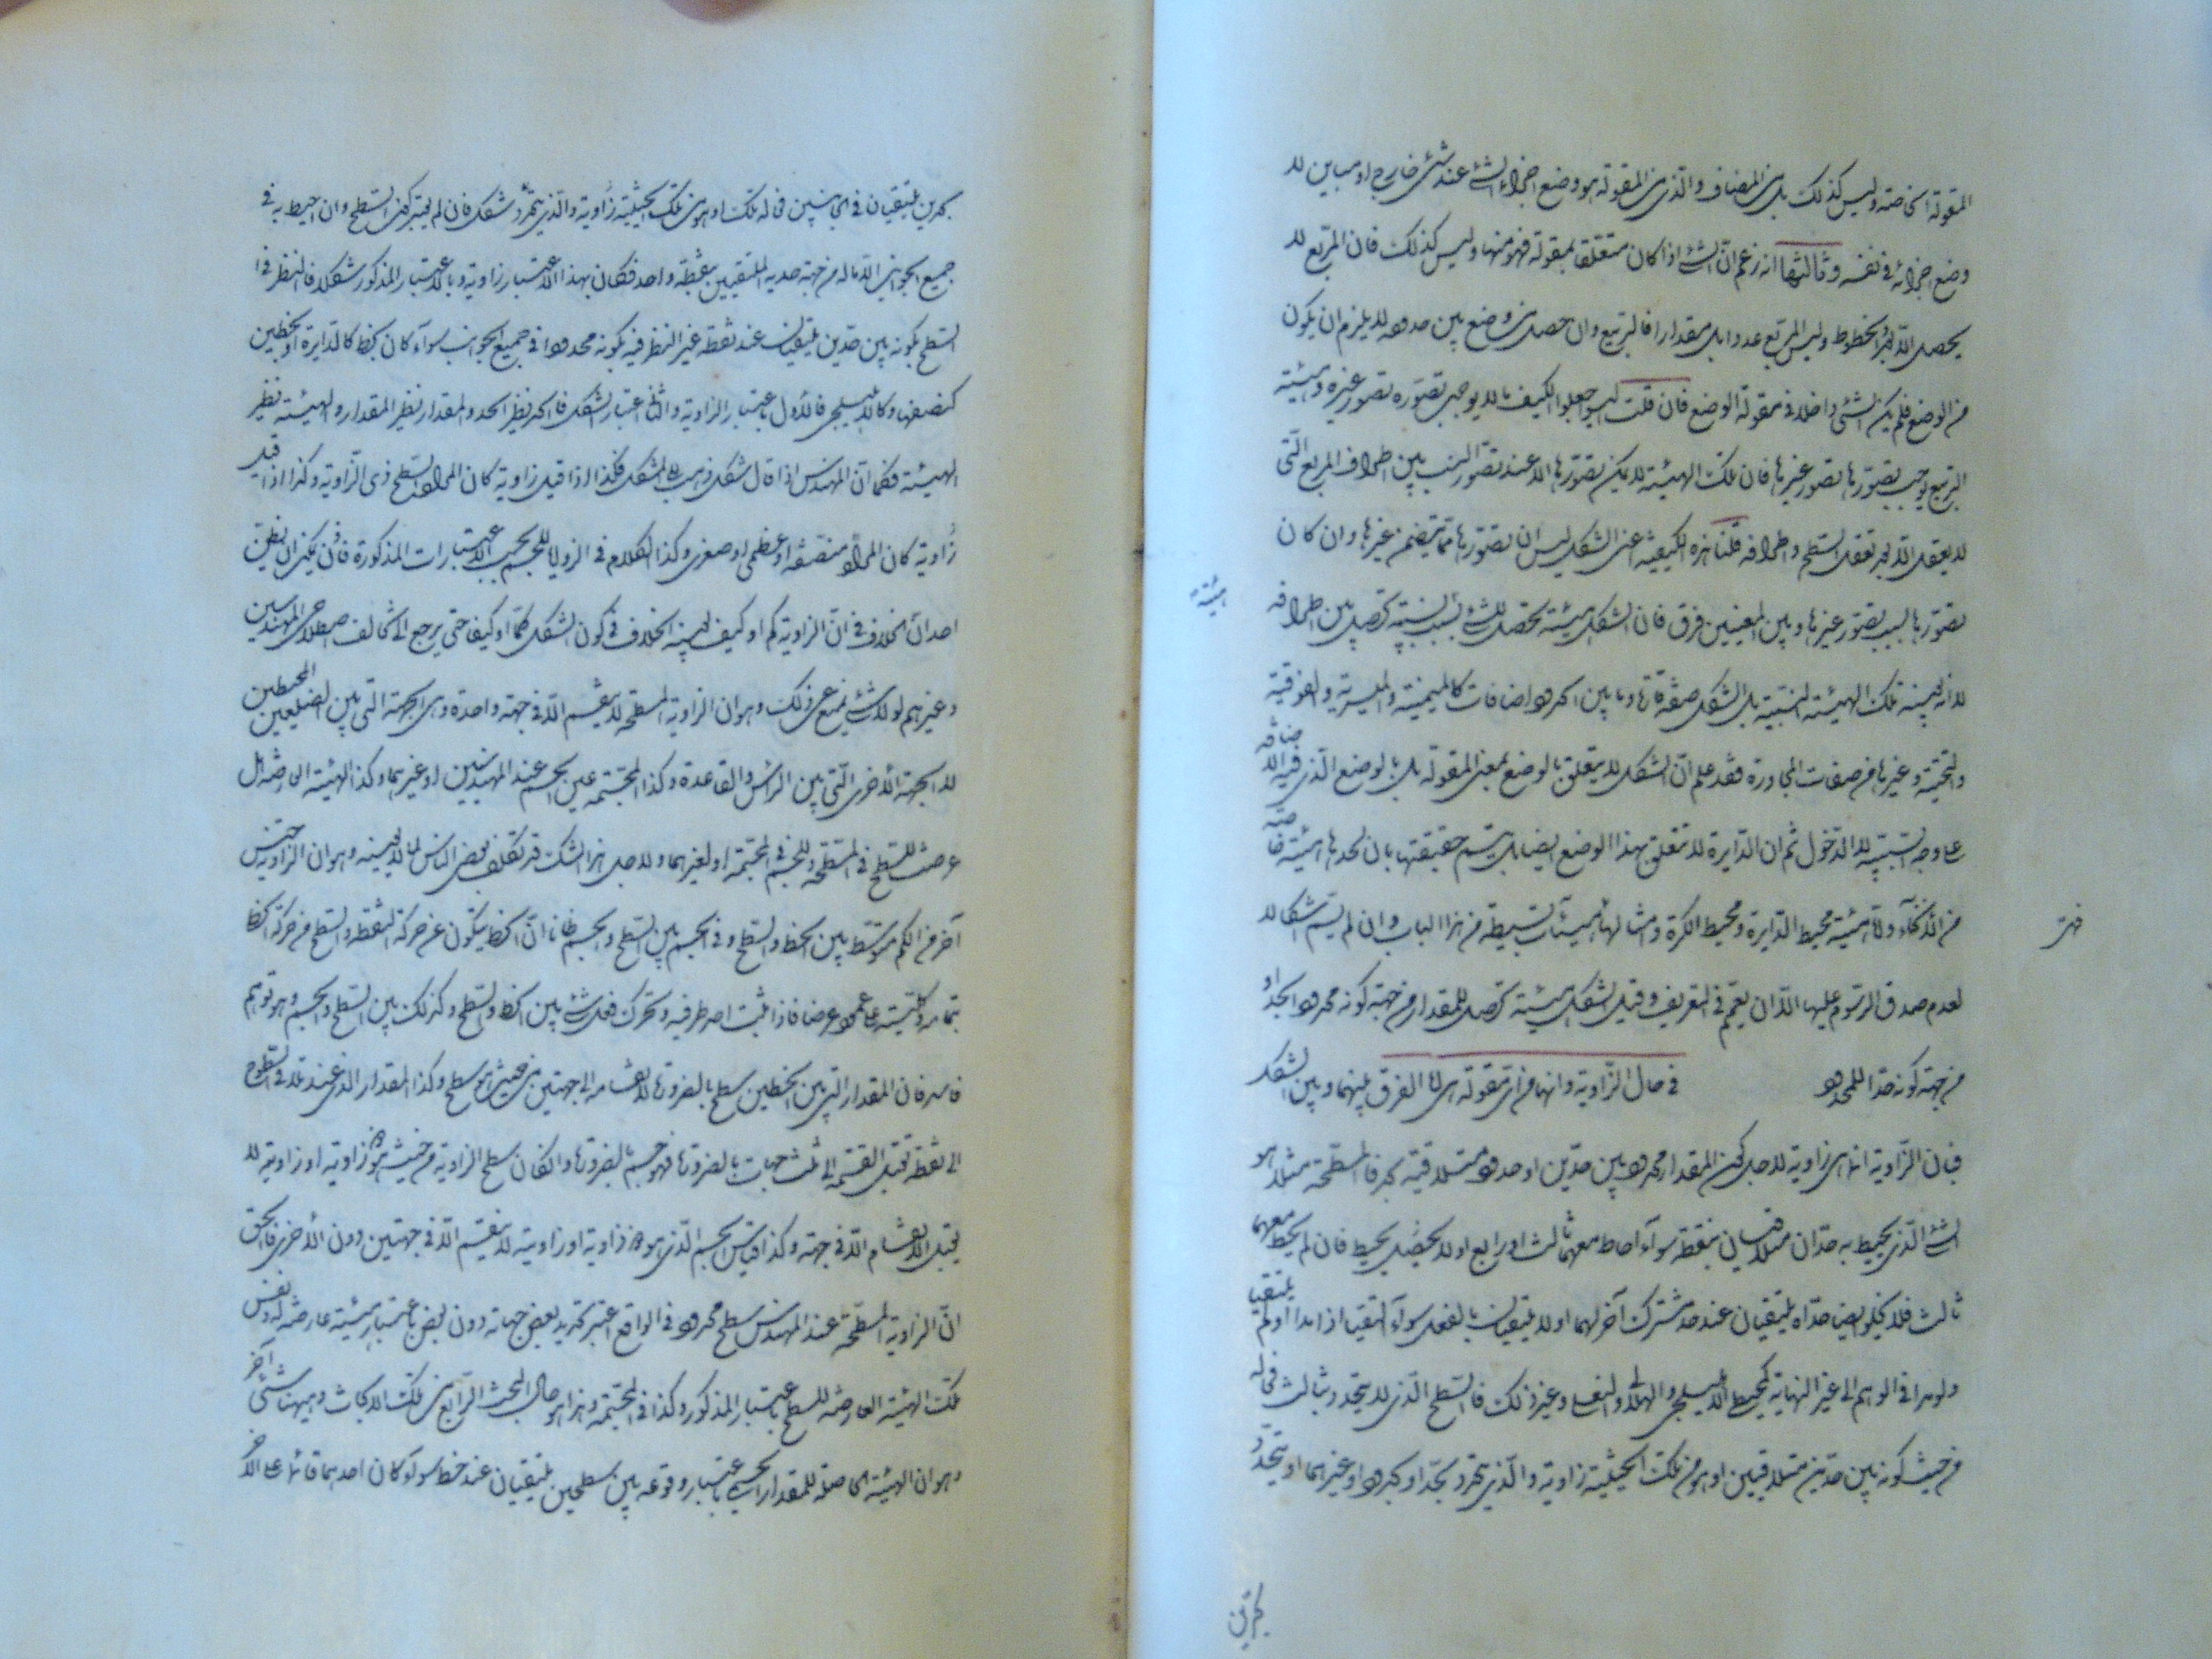 المقولة الخاصة وليس كذلك بل من المضاف والذي من المقولة هو وضع اجزاء الشئ عند شئ خارج او مباين لا
وضع اجزائه في نفسه وثالثها انه زعم ان الشئ اذا كان متعلقا بمقولة فهو منها وليس كذلك فان المربع لا
يحصل الا الخطوط وليس المربع عددا بل مقدارا فالتربيع وان حصل من وضع بين حدوده لا يلزم ان يكون
من الوضع فلم يكن الشئ داخلا في مقولة الوضع فان قلت اليس جعلوا الكيف ما لا يوجب تصوره تصور غيره وهيئة
التربيع يوجب تصورها تصور غيرها فان تلك الهيئة لا يمكن تصورها الا عند تصور النسب بين اطراف المربع التي
لا يعقل الا بعد تعقل السطح واطرافه قلنا هذه الكيفية اعني الشكل ليس ان تصورها مما يتضمن غيرها وان كان
تصورها بسبب تصور غيرها وبين المعنيين فرق فان الشكل هيئة تحصل للشئ بسبب نسبة تحصل بين اطرافه
هيئة
لا انه بعينه تلك الهيئة النسبية بل الشكل صفة قارة وما بين الحدود اضافات كالميمنية والميسرية والفوقية
والتحتية وغيرها من صفات المجاورة فقد علم ان الشكل لا يتعلق بالوضع بمعنى المقولة بل بالوضع الذي فيه الاضافة
على وجه السببية لا الدخول ثم ان الدايرة لا تتعلق بهذا الوضع ايضا بل يتم حقيقتها بان لحدها هيئة خاصة
من الانحناء وهيئة محيط الدايرة ومحيط الكرة وامثالها هيئات بسيطة من هذا الباب وان لم يسم شكلا
لعدم صدق الرسوم عليها الا ان يعمم في التعريف وقيل الشكل هيئة تحصل للمقدار من جهة كونه محدودا بحد او
من جهة كونه حدا للمحدود في حال الزاوية وانها من اي مقولة هي الفرق بينهما وبين الشكل
فان الزاوية انما هي زاوية لاجل كون المقدار محدودا بين حدين او حدود متلاقية بحد فالمسطحة مثلا هو
الشئ الذي يحيط به حدان متلاقيان بنقطة سواء احاط معهما ثالث او رابع او لا يحيط فان لم يحط معهما
ثالث فلا يخلو ايضا حداه يلتقيان عند حد مشترك آخر لهما او لا يلتقيان بالفعل سواء التقيا اذا مدا او لم يلتقيا
ولو مدا في الوهم الى غير النهاية كمحيط الاهليلجي والهلالي والنعلي وغير ذلك فالسطح الذي لا يتحدد بثالث فماله
من حيث كونه بين حدين متلاقيين او هو من تلك الحيثية زاوية والذي تحدد بحد او بحدود او غيرهما او يتحدد
بحدين
بحدين يلتقيان في الجانبين فماله تلك او هو من تلك الحيثية زاوية والذي تحدد شكل فان لم يعتبر كون السطح وان احيط به في
جميع الجوانب الا ماله من جهة حديه الملتقيين بنقطة واحد فكان بهذا الاعتبار زاوية وبالاعتبار المذكور شكلا فالنظر في
السطح بكونه بين حدين يلتقيان عند نقطة غير النظر فيه بكونه محدودا في جميع الجوانب سواء كان بخط كالدايرة او بخطين
كنصفها وكالاهليلجي فالاول باعتبار الزاوية والثاني اعتبار الشكل فالحد نظير الحد والمقدار نظير المقدار والهيئة نظير
الهيئة فكما ان المهندس اذا قال شكل ذهب الى المشكل فكذا اذا قيل زاوية كان المراد السطح ذي الزاوية وكذا اذا قيل
زاوية كان المراد منصفة او عظمى او صغرى وكذا الكلام في الزوايا للمجسم بحسب الاعتبارات المذكورة فاذن يمكن ان يظن
احد ان الخلاف في ان الزاوية كم او كيف بعينه الخلاف في كون الشكل كما او كيفا حتى يرجع الى تخالف اصطلاحي المهندسين
وغيرهم لولا شئ يمنع عن ذلك وهو ان الزاوية المسطحة لا ينقسم الا في جهة واحدة وهي الجهة التي بين الضلعين المحيطين
لا الجهة الاخرى التي بين الراس والقاعدة وكذا المجسمة عين الجسم عند المهندسين او غيرهما وكذا الهيئة العارضة هل
عرضت للسطح في المسطحة وللجسم في المجسمة او لغيرهما ولاجل هذا الشك قد تكلف بعض الناس لما لا يعنيه وهو ان الزاوية جنس
آخر من الكم متوسط بين الخط والسطح وفي الجسم بين السطح والجسم ظانا ان الخط يتكون عن حركة النقطة والسطح من حركة الخط
بتمامه وكليته على عموده عرضا فاذا ثبت احد طرفيه وتحرك فعل شئ بين الخط والسطح وكذلك بين السطح والجسم وهو توهم
فاسد فان المقدار الذي بين الخطين سطح بالضرورة لانقسامه الى جهتين من حيث هو سطح وكذا المقدار الذي عند تلاقي السطوح
الى نقطة تقبل القسمة الى ثلث جهات بالضرورة فهو جسم بالضرورة وان كان سطح الزاوية من حيث هو ذو زاوية او زاوية لا
يقبل الانقسام الا في جهة وكذا قياس الجسم الذي هو ذو زاوية او زاوية لا ينقسم الا في جهتين دون الاخرى فالحق
ان الزاوية المسطحة عند المهندس سطح محدود في الواقع اعتبر تحديد بعض جهاته دون بعض باعتبار هيئة عارضة له ونفس
تلك الهيئة العارضة للسطح باعتبار المذكور وكذا في المجسمة وهذا هو حال البحث الرابع من تلك الابحاث وههنا شئ آخر
وهو ان الهيئة الحاصلة للمقدار الجسمي باعتبار وقوعه بين سطحين يلتقيان عند خط سواء كان احدهما قائما على الآخر